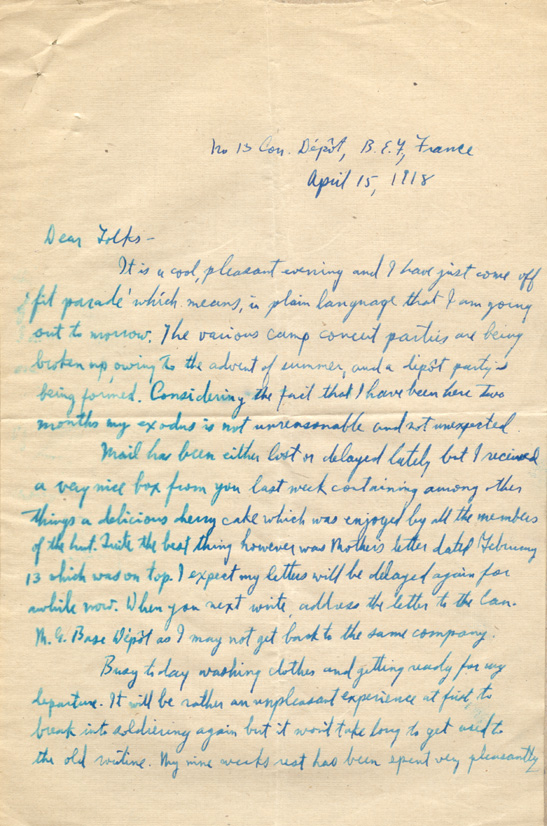 No 13 Con. Dépôt, B.E.F., France
April 15, 1918
Dear Folks-
It is a cool, pleasant evening and I have just come off
'fit parade' which means, in plain language that I am going
out to morrow. The various camp concert parties are being
broken up, owing to the advent of summer, and a depôt party is
being formed. Considering the fact that I have been here two
months my exodus is not unreasonable and not unexpected.
Mail has been either lost or delayed lately but I received
a very nice box from you last week containing among other
things a delicious cherry cake which was enjoyed by all the members
of the hut. Quite the best thing however was Mother's letter dated February
13 which was on top. I expect my letters will be delayed again for
awhile now. When you next write, address the letter to the Can.
M. G. Base Dépôt as I may not get back to the same company.
Busy to day washing clothes and getting ready for my
departure. It will be rather an unpleasant experience at first, to
break into soldiering again but it won't take long to get used to
the old routine. My nine weeks rest has been spent very pleasantly